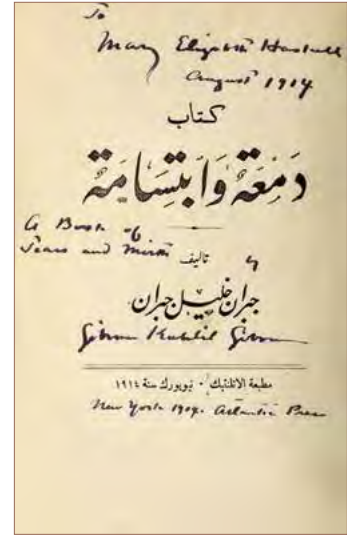 To
Mary Elizabeth Haskell
August 1914
كتاب
دَمْعَة وَابتِسَامَة
A Book of
Tears and Mirth
تأليف
by
جبران خليل جبران
Gibran Kahlil Gibran
مطبعة الاتلنتيك · نيويورك سنة ١٩١٤
New York 1914. Atlantic Press